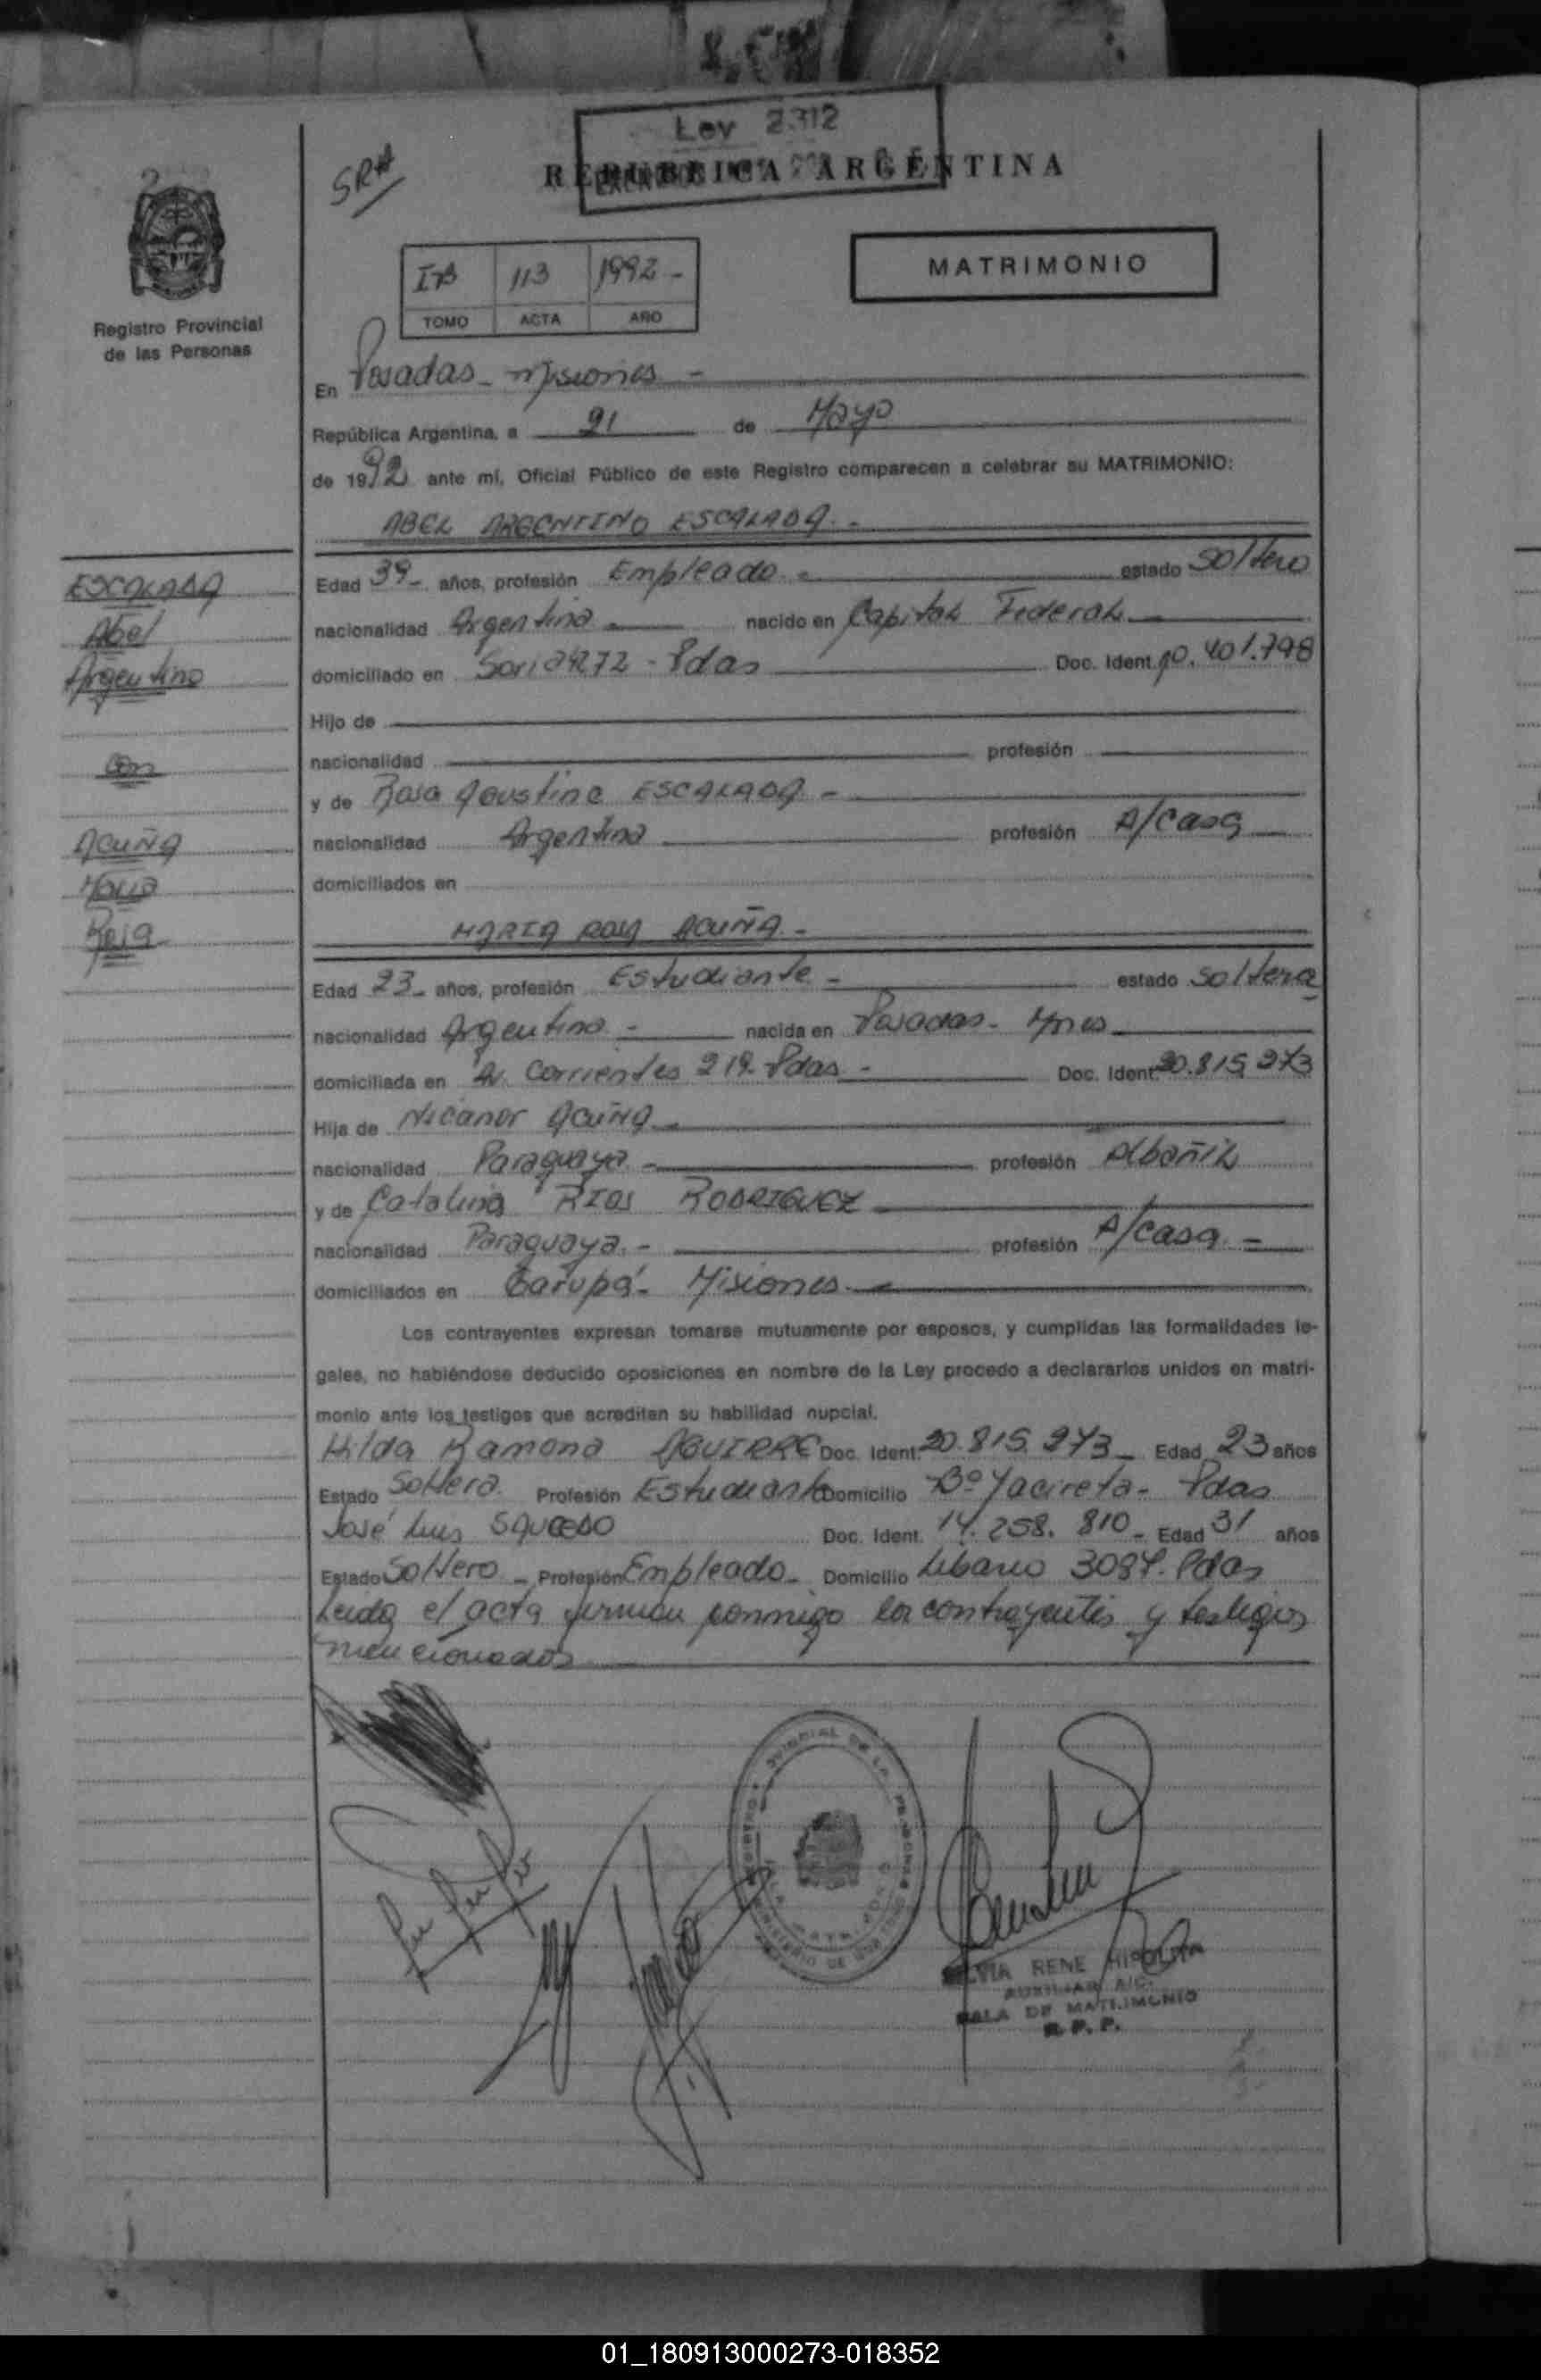 Ley 2312
SRH
REPUBLICA ARGENTINA
MATRIMONIO
IB 113 1992-
TOMO ACTA AÑO
Registro Provincial
de las Personas
En Posadas - Misiones -
República Argentina, a 21 de Mayo
de 1992 ante mí, Oficial Público de este Registro comparecen a celebrar su MATRIMONIO:
ABEL ARGENTINO ESCALADA.-
ESCALADA
Abel
Argentino
con
ACUÑA
Maria
Rosa
Edad 39- años, profesión Empleado - estado Soltero
nacionalidad Argentina - nacido en Capital Federal -
domiciliado en - Pdas Doc. Ident. 10.401.798
Hijo de
nacionalidad profesión
y de Rosa Agustina ESCALADA -
nacionalidad Argentina profesión A/Casa
domiciliados en
MARIA ROSA ACUÑA.-
Edad 23- años, profesión Estudiante - estado Soltera
nacionalidad Argentina - nacida en Posadas - Mnes
domiciliada en Av. Corrientes 219- Pdas - Doc. Ident. 20.815.273
Hija de Nicanor Acuña
nacionalidad Paraguaya - profesión Albañil
y de Catalina RIOS RODRIGUEZ
nacionalidad Paraguaya.- profesión A/Casa -
domiciliados en Garupá - Misiones -
Los contrayentes expresan tomarse mutuamente por esposos, y cumplidas las formalidades le-
gales, no habiéndose deducido oposiciones en nombre de la Ley procedo a declararlos unidos en matri-
monio ante los testigos que acreditan su habilidad nupcial.
Hilda Ramona AGUIRRE Doc. Ident. 20.815.273- Edad 23 años
Estado Soltera. Profesión Estudiante Domicilio Bº Yacireta - Pdas
José Luis SAUCEDO Doc. Ident. 14.258.810- Edad 31 años
Estado Soltero - Profesión Empleado - Domicilio Libano 3087- Pdas
Leida el acta firman conmigo los contrayentes y testigos
mencionados
SILVIA RENE HIPOLITA
AUXILIAR A/C.
SALA DE MATRIMONIO
R. P. P.
01_180913000273-018352